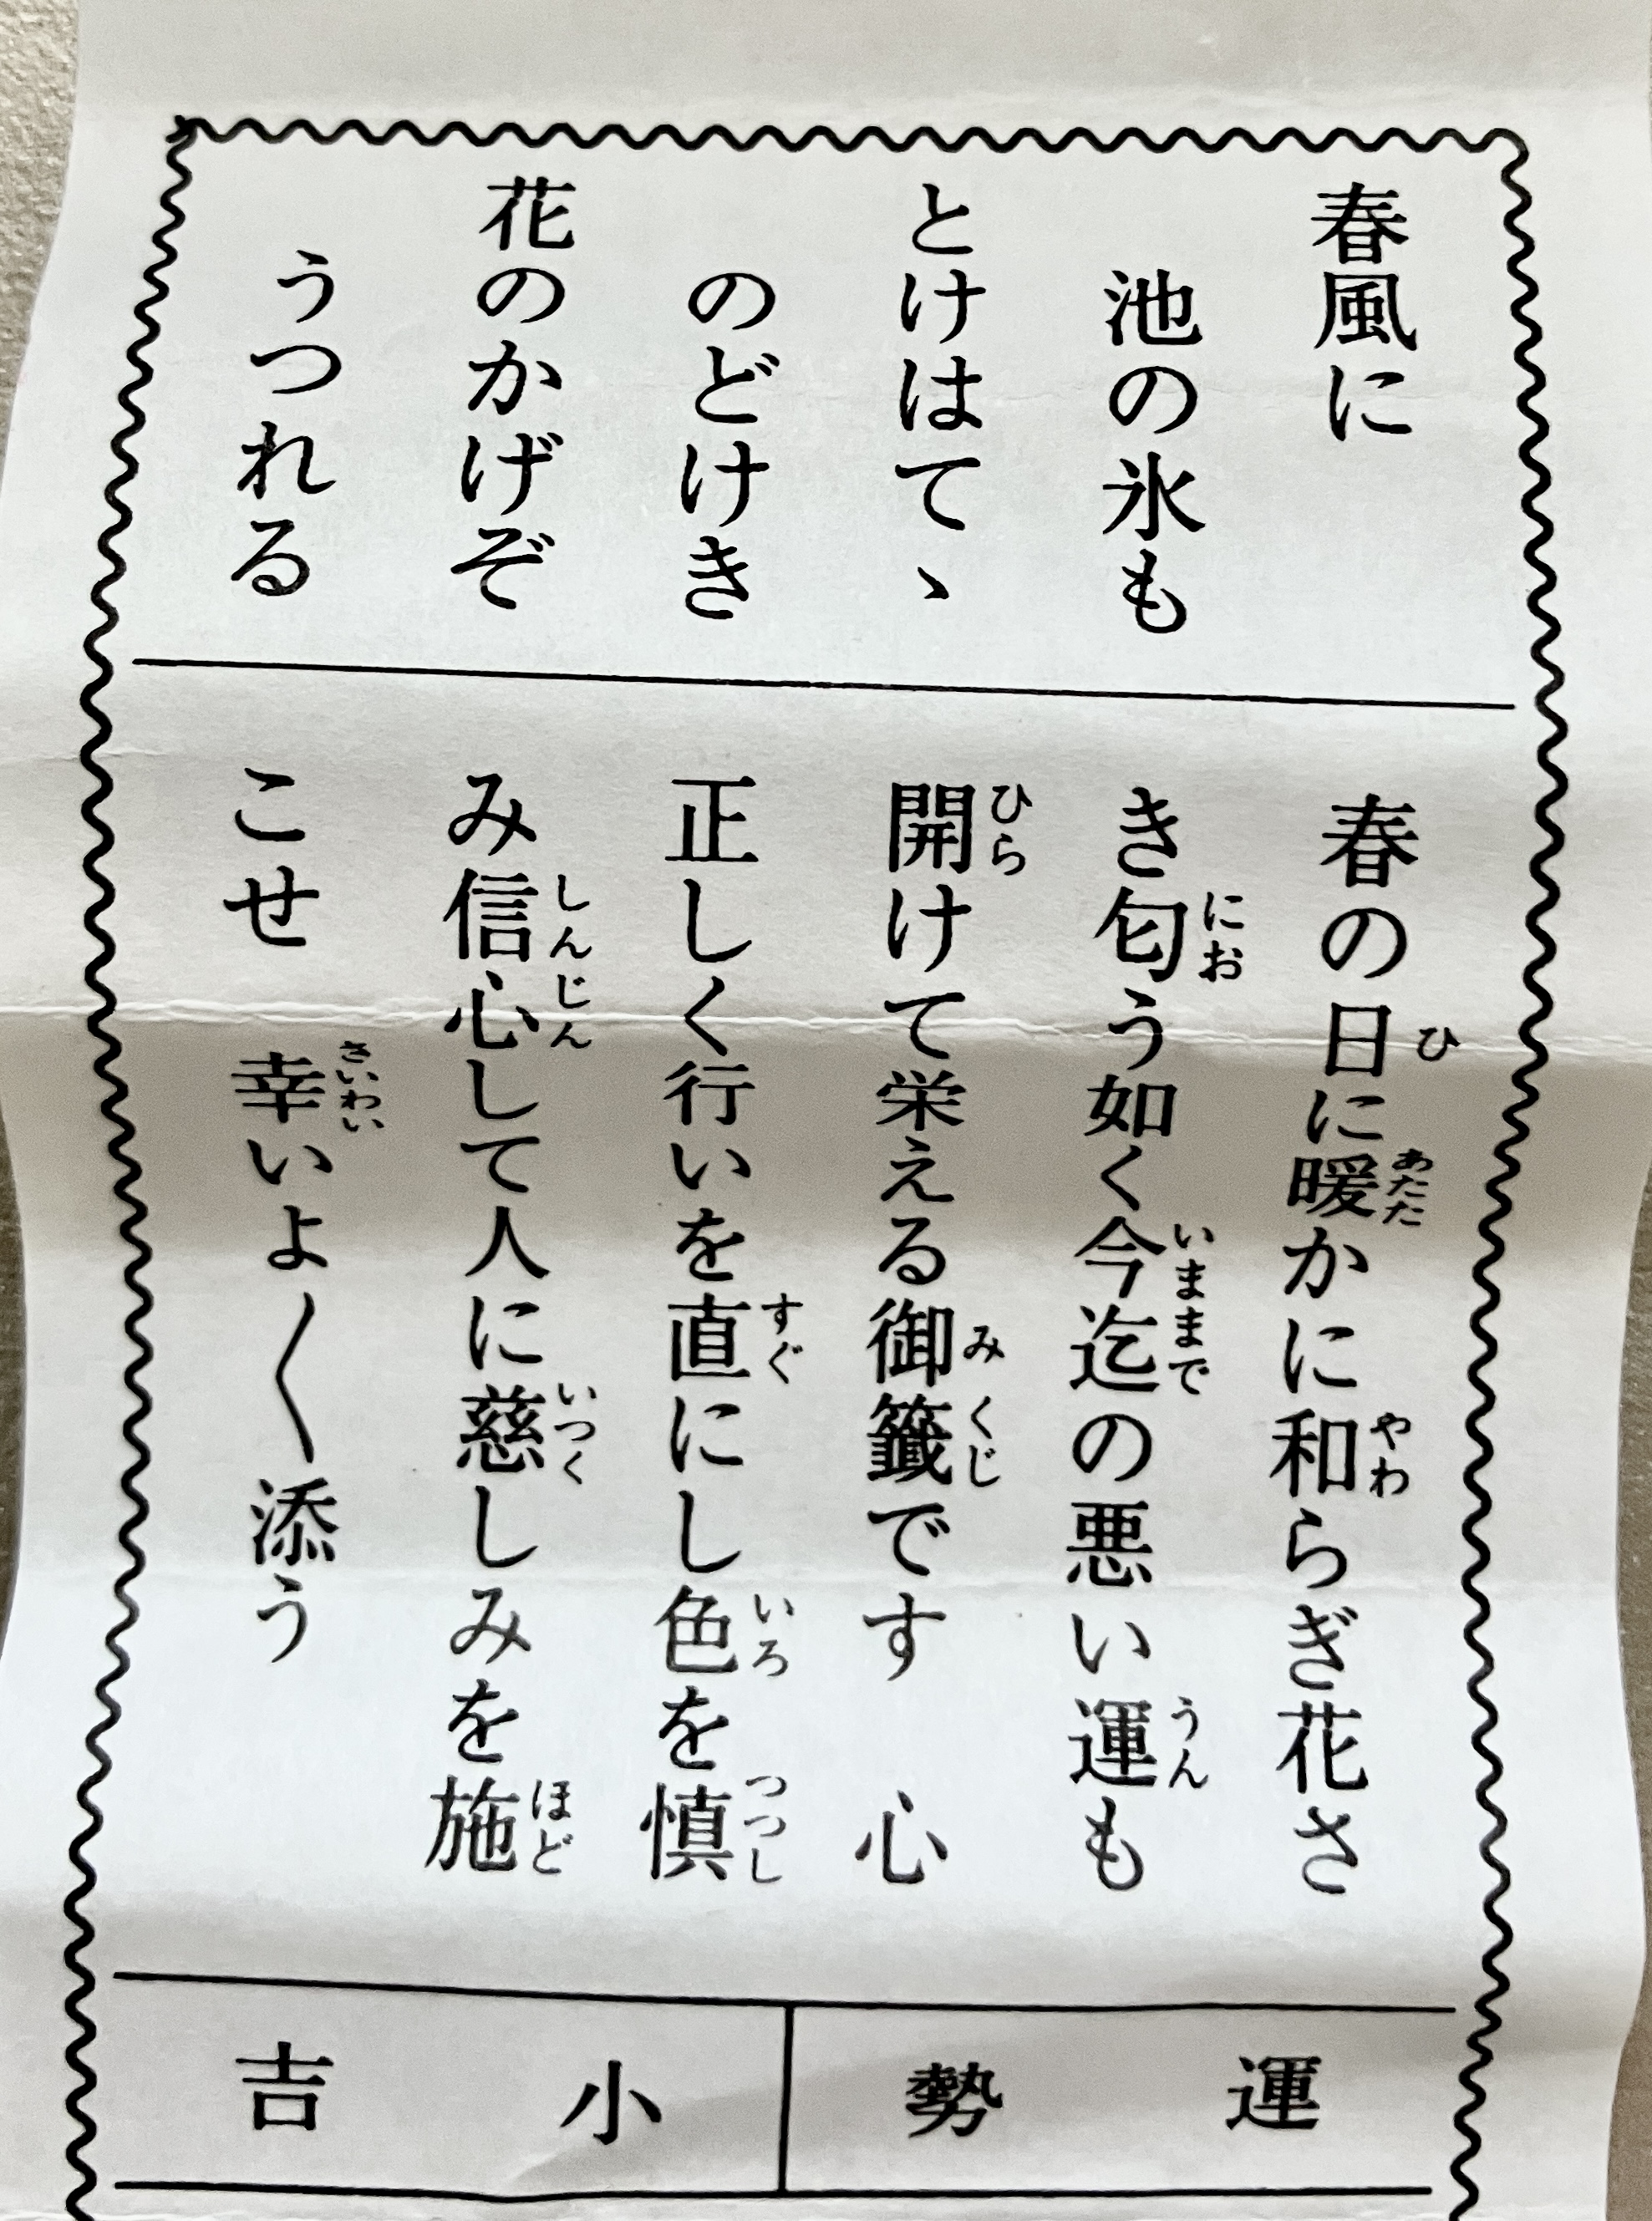 春風に
池の氷も
とけはてゝ
のどけき
花のかげぞ
うつれる
春の日に暖かに和らぎ花さ
き匂う如く今迄の悪い運も
開けて栄える御籤です　心
正しく行いを直にし色を慎
み信心して人に慈しみを施
こせ　幸いよ〱添う
運勢
小吉